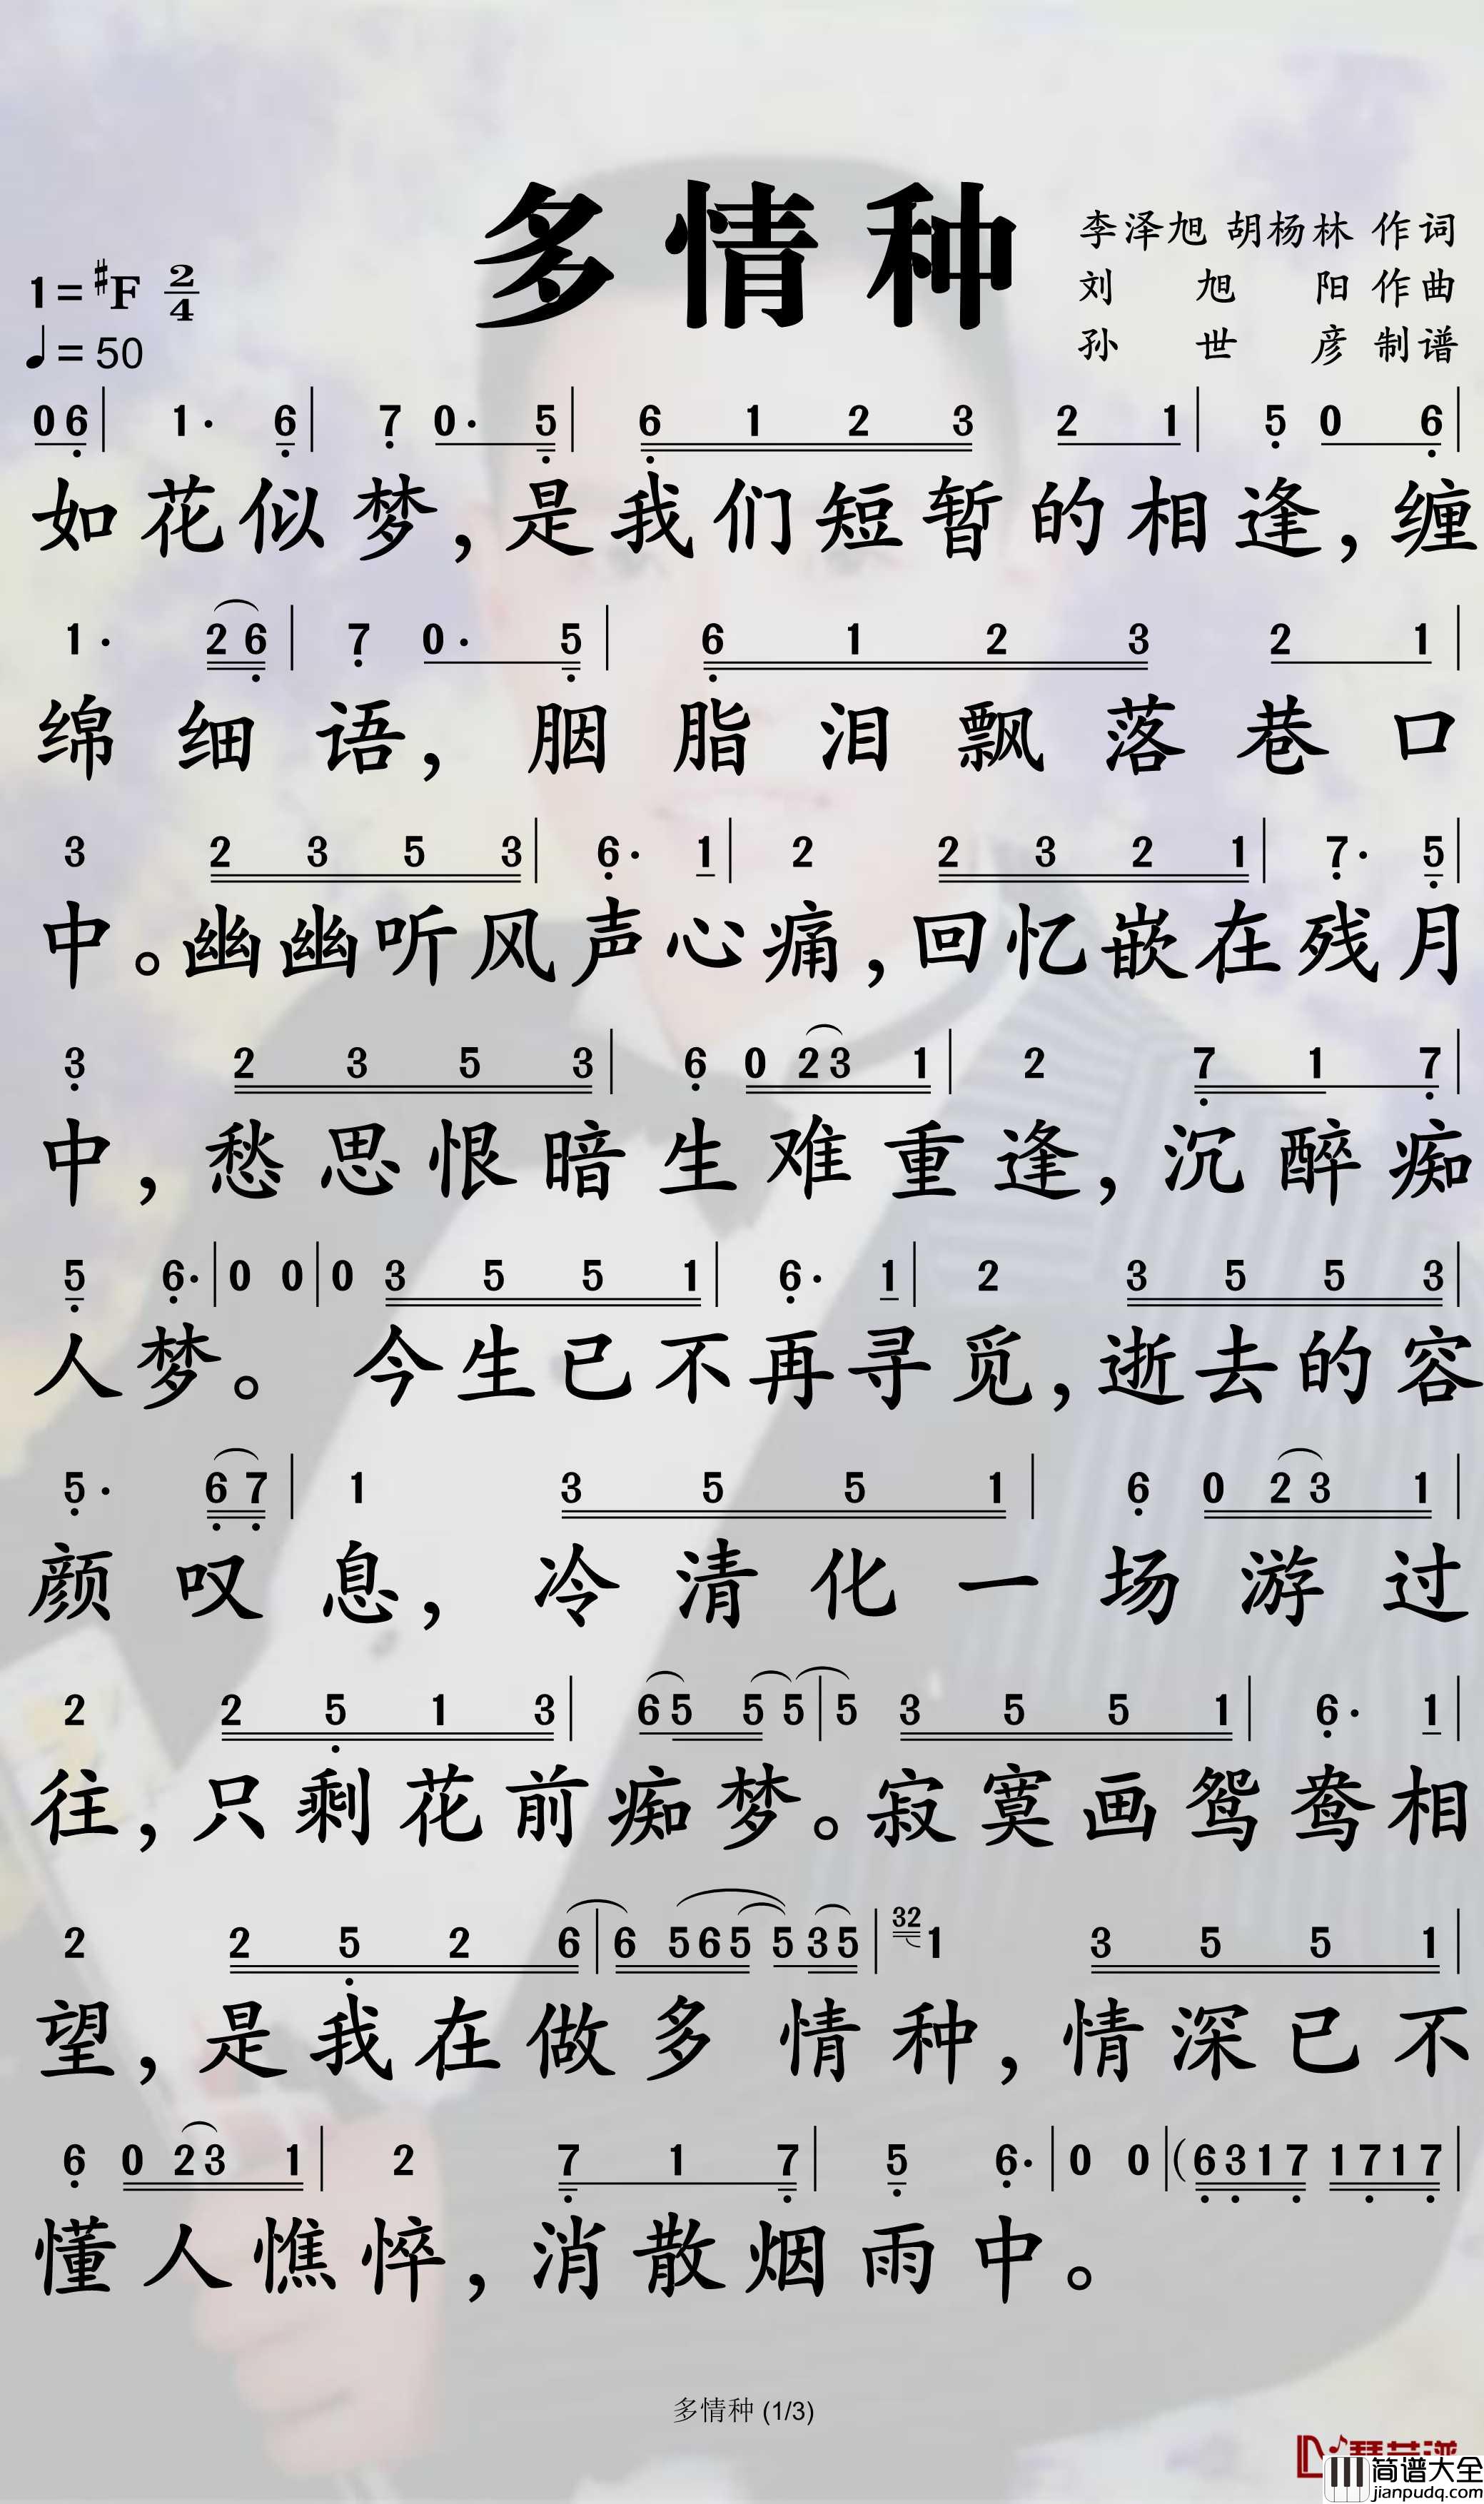 多情种
李泽旭 胡杨林 作词
刘旭阳 作曲
孙世彦 制谱
1=♯F 2/4
♩=50
0 6 | 1· 6 | 7 0· 5 | 6 1 2 3 2 1 | 5 0 6 |
如花似梦，是我们短暂的相逢，缠
1· 2 6 | 7 0· 5 | 6 1 2 3 2 1 |
绵细语，胭脂泪飘落巷口
3 2 3 5 3 | 6· 1 | 2 2 3 2 1 | 7· 5 |
中。幽幽听风声心痛，回忆嵌在残月
3 2 3 5 3 | 6 0 2 3 1 | 2 7 1 7 |
中，愁思恨暗生难重逢，沉醉痴
5 6· | 0 0 | 0 3 5 5 1 | 6· 1 | 2 3 5 5 3 |
人梦。今生已不再寻觅，逝去的容
5· 6 7 | 1 3 5 5 1 | 6 0 2 3 1 |
颜叹息，冷清化一场游过
2 2 5 1 3 | 6 5 5 5 | 5 3 5 5 1 | 6· 1 |
往，只剩花前痴梦。寂寞画鸳鸯相
2 2 5 2 6 | 6 5 6 5 5 3 5 | 32 1 3 5 5 1 |
望，是我在做多情种，情深已不
6 0 2 3 1 | 2 7 1 7 | 5 6· | 0 0 | (6 3 1 7 1 7 1 7 |
懂人憔悴，消散烟雨中。
多情种 (1/3)
简谱大全
jianpudq.com